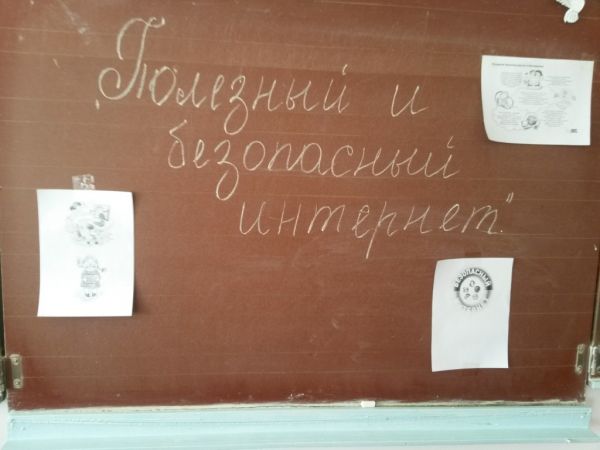 „Полезный и
безопасный
интернет"
БЕЗОПАСНЫЙ